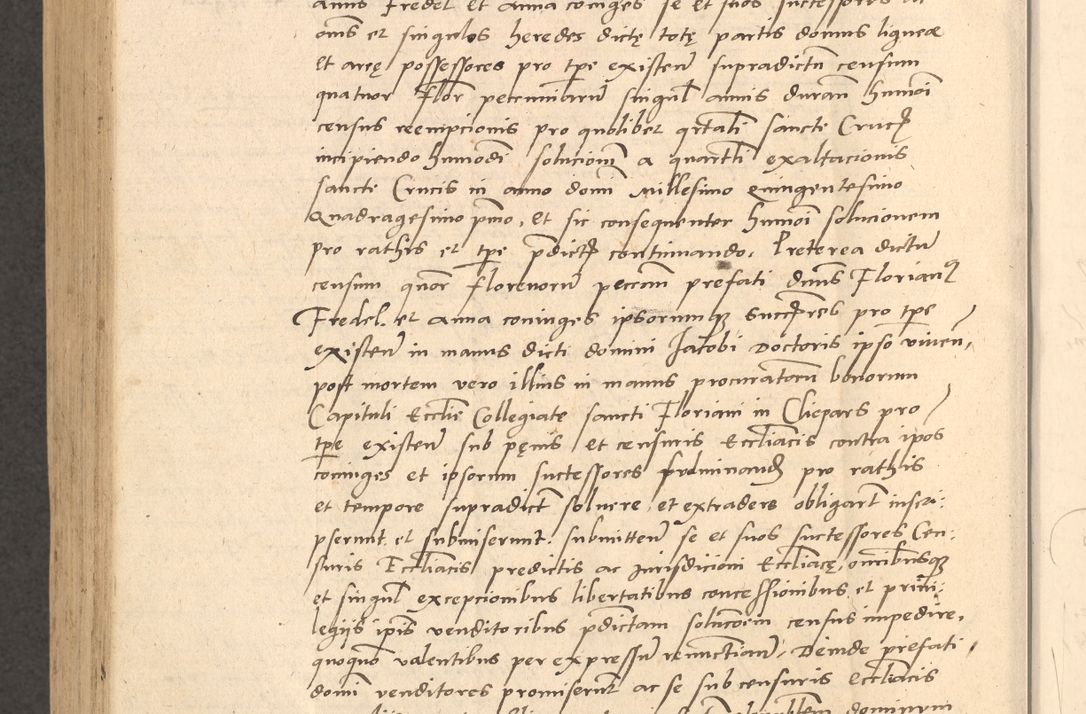 annis Fredel et Anna coniuges se et suos successores ac
oms et singulos heredes dictę totę partis domus ligneæ
et aręę possessores pro tpe existen̄ supradictū censum
quatuor Flor pecuniarū singul annis duran̄ hmoi
census reempcionis pro quolibet qrtali sancte Crucis
incipiendo hmodi solucionē a quartli exaltacionis
sancte Crucis in anno domi Millesimo quingentesimo
Quadragesimo pmo, et sic consequenter hmoi solucionem
pro rathis et tpe pdict continuando. Preterea dictū
censum quor florenorū pecuniar prefati dnus Florianus
Fredel et Anna coniuges ipsorumque succssres pro tpe
existen̄ in manus dicti domini Jacobi Doctoris ipso viuen,
post mortem vero illius in manus procuratorū bonorum
Capituli Ecclie Collegiate sancti Floriani in Cliepars pro
tpe existen̄ sub pęnis et censuris Eccliacis contra ipos
coniuges et ipsorum successores fulminand pro rathis
et tempore supradict soluere et extradere obligarūt inscri-
pserunt et submiserunt. submitten̄ se et suos successores Cen-
suris Eccliacis predictis ac Jurisdicioni Eccliacę, omnibusque
et singul excepcionibus libertatibus concessionibus et priui-
legiis ipis venditoribus pdictam solucoem census impedire,
quoquo valentibus per expressū renuncian̄, Deinde prefati
domi venditores promiserūt ac se sub censuris Eccliacis
dominum